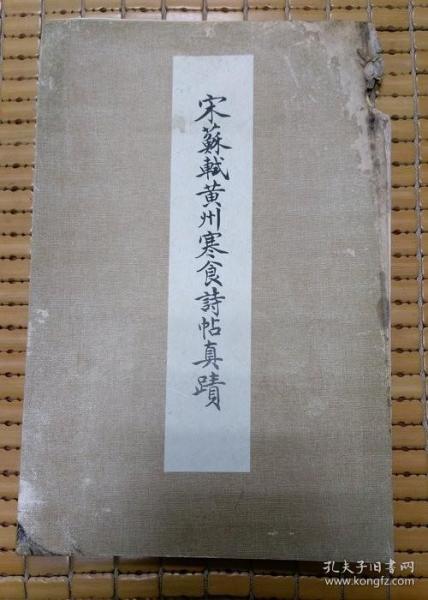 宋蘇軾黄州寒食詩帖真蹟
孔夫子旧书网
www.kongfz.com